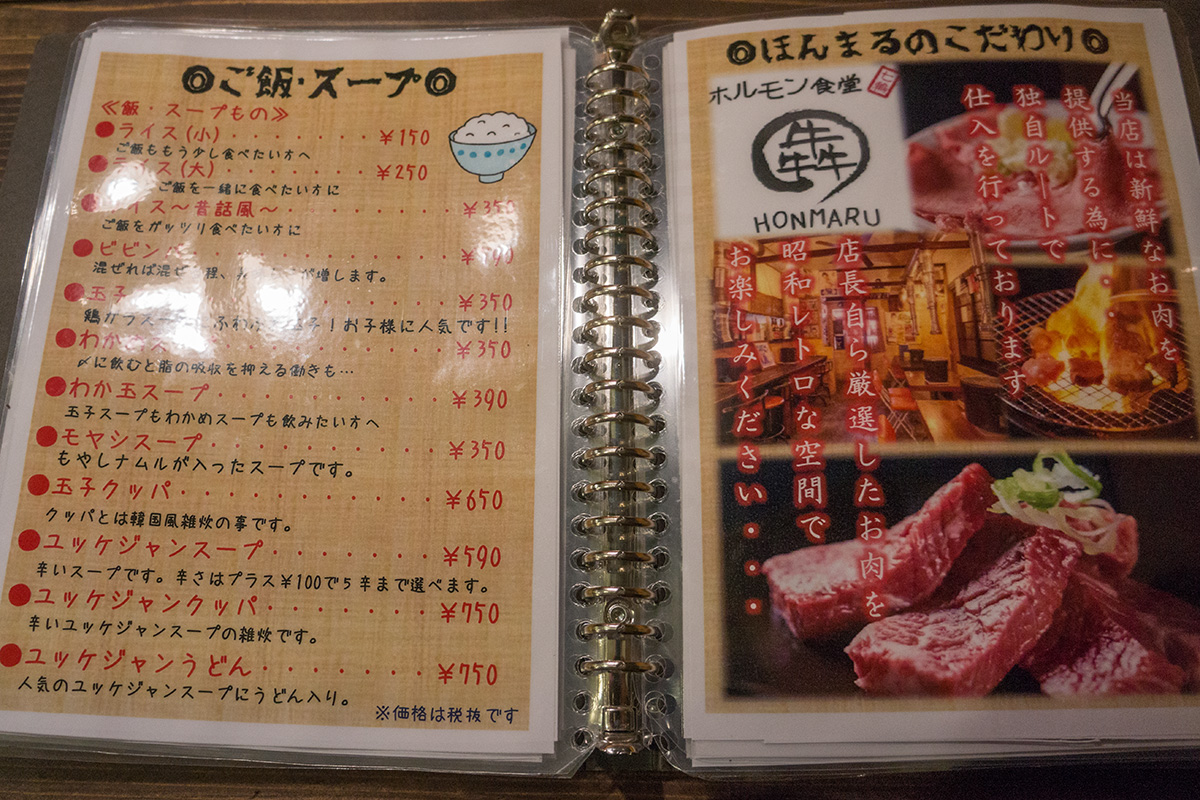 ◎ご飯・スープ◎
≪飯・スープもの≫
●ライス(小)・・・・・・・￥150
ご飯ももう少し食べたい方へ
●ライス(大)・・・・・・・￥250
ご飯を一緒に食べたい方に
イス〜昔話風〜・・・・・・・￥350
ご飯をガッツリ食べたい方に
●ビビン
混ぜれば混ぜ 程、 が増します。
●玉子 ￥350
鶏ガラスー ふわ 子！お子様に人気です!!
●わか ￥350
〆に飲むと脂の吸収を抑える働きも…
●わか玉スープ・・・・・・・￥390
玉子スープもわかめスープも飲みたい方へ
●モヤシスープ・・・・・・・￥350
もやしナムルが入ったスープです。
●玉子クッパ・・・・・・・・￥650
クッパとは韓国風雑炊の事です。
●ユッケジャンスープ・・・・・・￥590
辛いスープです。辛さはプラス￥100で5辛まで選べます。
●ユッケジャンクッパ・・・・・・￥750
辛いユッケジャンスープの雑炊です。
●ユッケジャンうどん・・・・・・￥750
人気のユッケジャンスープにうどん入り。
※価格は税抜です
◎ほんまるのこだわり◎
ホルモン食堂
犇
HONMARU
当店は新鮮なお肉を
提供する為に・・
独自ルートで
仕入を行っております
店長自ら厳選したお肉を
昭和レトロな空間で
お楽しみください・・・・